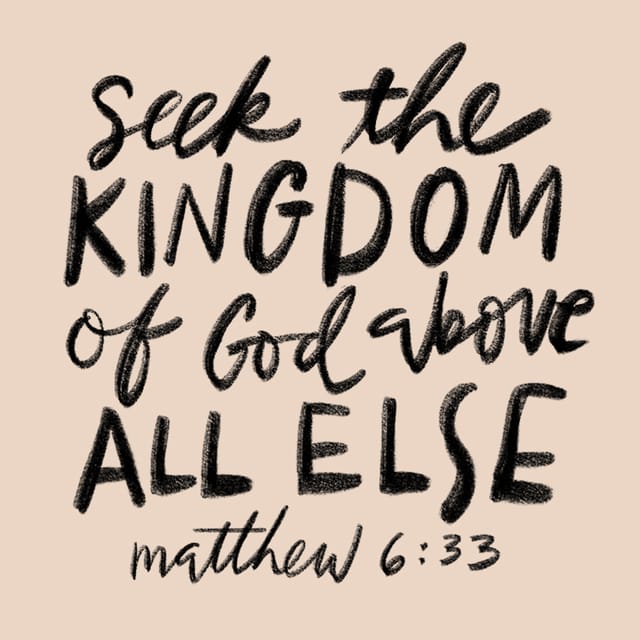 seek the
KINGDOM
of God above
ALL ELSE
matthew 6:33